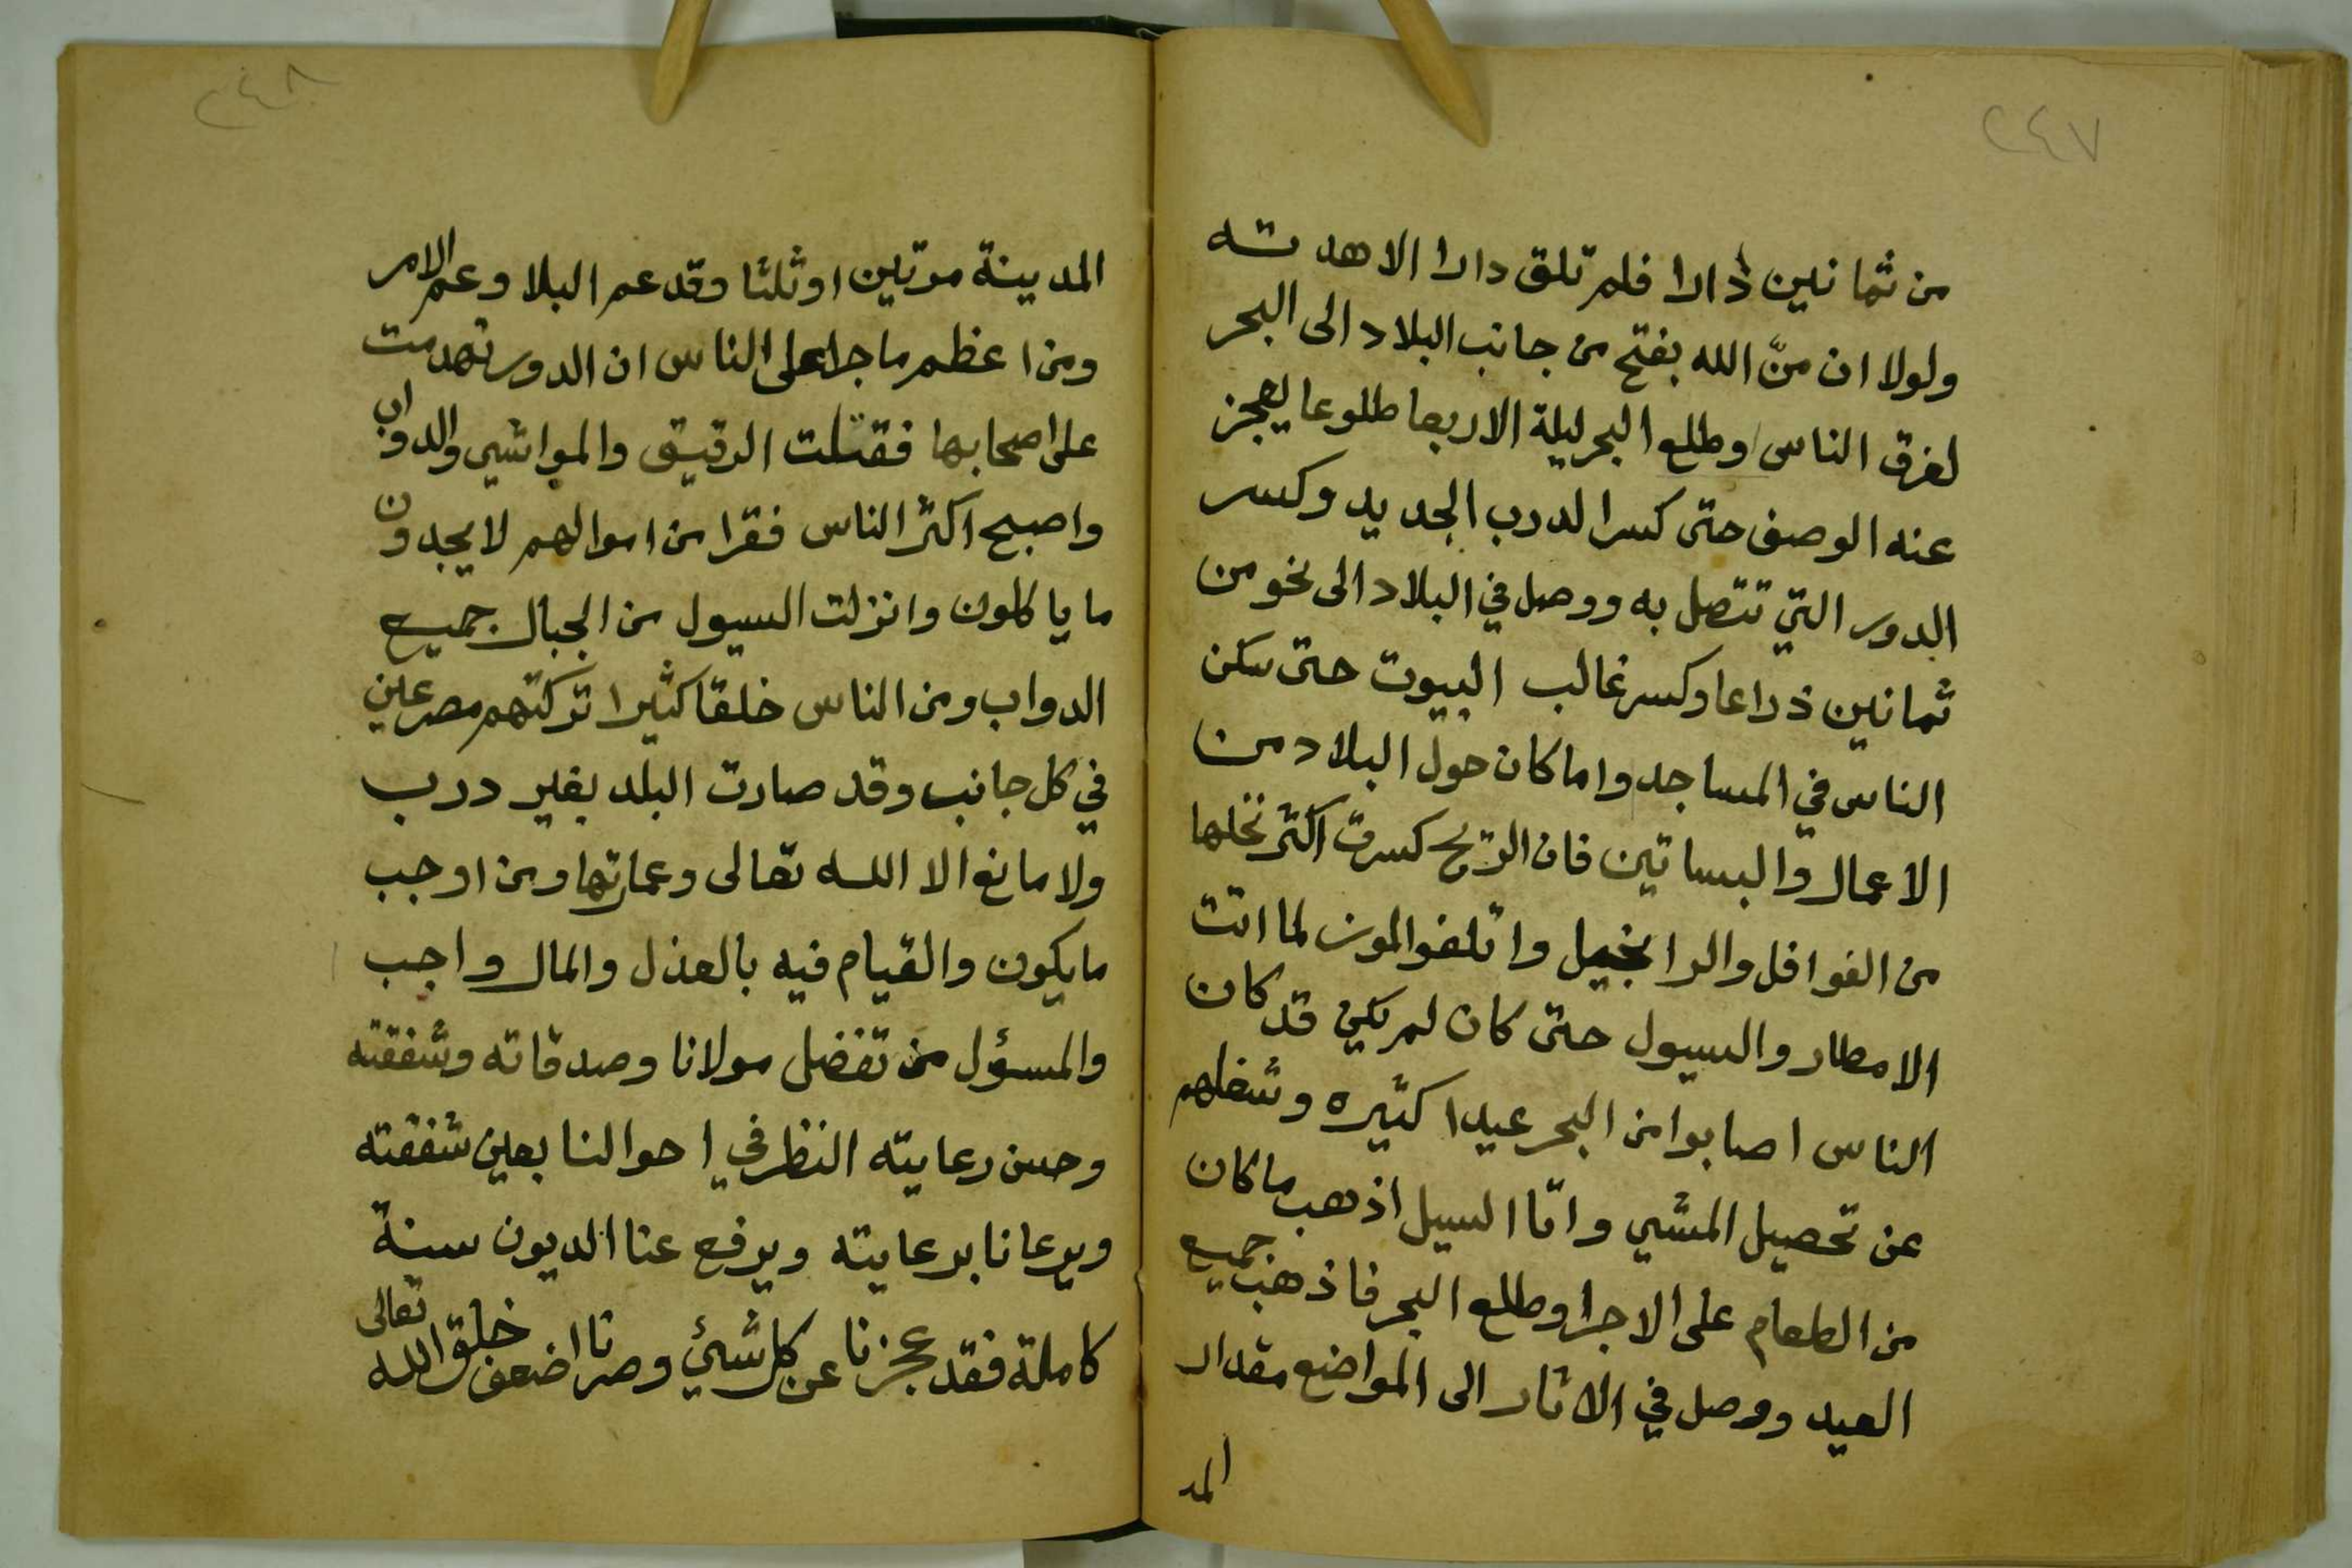 ٢٤٧
من ثمانين دارا فلم تلق دارا الا هدته
ولولا ان منّ الله بفتح من جانب البلاد الى البحر
لغرق الناس وطلع البحر ليلة الاربعا طلوعا يعجز
عنه الوصف حتى كسر الدرب الجديد وكسر
الدور التي تتصل به ووصل في البلاد الى نحو من
ثمانين ذراعا وكسر غالب البيوت حتى سكن
الناس في المساجد واما كان حول البلاد من
الاعمال والبساتين فان الريح كسرت اكثر نخلها
من الفوافل والرانجيل واتلفوا لموت لما اتت
الامطار والسيول حتى كان لم يكن قد كان
الناس اصابوا من البحر عيدا كثيره وشغلهم
عن تحصيل المشي وامّا السيل اذهب ما كان
من الطعام على الاجرا وطلع البحر فاذهب جميع
العيد ووصل في الاثار الى المواضع مقدار
المد
٢٤٨
المدينة مرتين او ثلثا وقد عم البلا وعم الامر
ومن اعظم ما جرا على الناس ان الدور تهدمت
على اصحابها فقتلت الرقيق والمواشي والدواب
واصبح اكثر الناس فقرا من اموالهم لا يجدون
ما ياكلون وانزلت السيول من الجبال جميع
الدواب ومن الناس خلقا كثيرا تركتهم مصرعين
في كل جانب وقد صارت البلد بغير درب
ولا مانع الا الله تعالى وعمارتها ومن اوجب
ما يكون والقيام فيه بالعذل والمال واجب
والمسؤل من تفضل مولانا وصدقاته وشفقته
وحسن رعايته النظر في احوالنا بعين شفقته
ويرعانا برعايته ويرفع عنا الديون سنة
كاملة فقد عجزنا عن كل شيئ وصرنا اضعف خلق الله تعالى